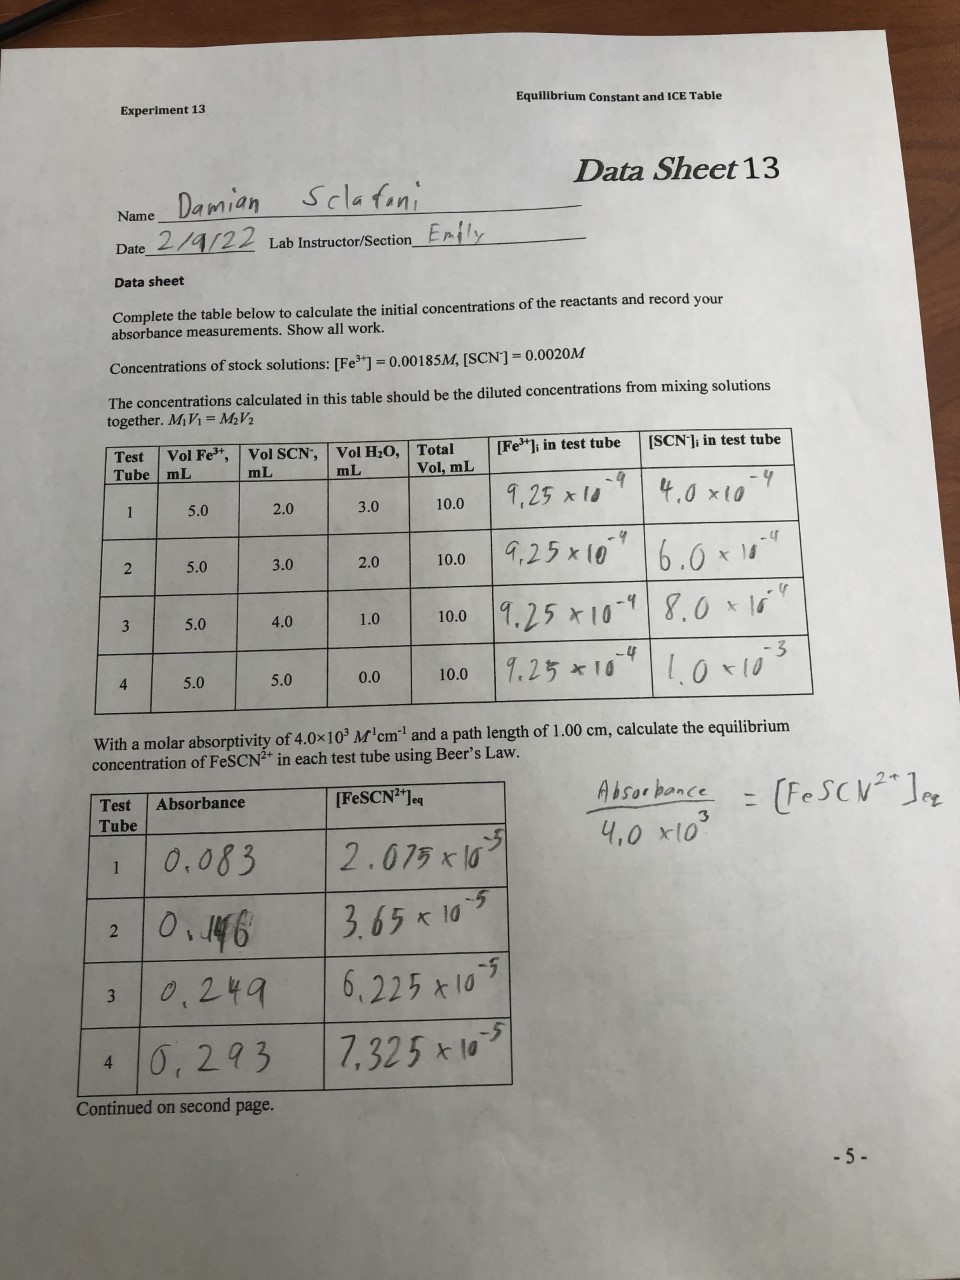 Experiment 13
Equilibrium Constant and ICE Table
Data Sheet 13
Name Damian Sclafani
Date 2/9/22 Lab Instructor/Section Emily
Data sheet
Complete the table below to calculate the initial concentrations of the reactants and record your
absorbance measurements. Show all work.
Concentrations of stock solutions: [Fe³⁺] = 0.00185M, [SCN⁻] = 0.0020M
The concentrations calculated in this table should be the diluted concentrations from mixing solutions
together. M₁V₁ = M₂V₂
Test Tube | Vol Fe³⁺, mL | Vol SCN⁻, mL | Vol H₂O, mL | Total Vol, mL | [Fe³⁺]ᵢ in test tube | [SCN⁻]ᵢ in test tube
1 | 5.0 | 2.0 | 3.0 | 10.0 | 9.25 x 10⁻⁴ | 4.0 x 10⁻⁴
2 | 5.0 | 3.0 | 2.0 | 10.0 | 9.25 x 10⁻⁴ | 6.0 x 10⁻⁴
3 | 5.0 | 4.0 | 1.0 | 10.0 | 9.25 x 10⁻⁴ | 8.0 x 10⁻⁴
4 | 5.0 | 5.0 | 0.0 | 10.0 | 9.25 x 10⁻⁴ | 1.0 x 10⁻³
With a molar absorptivity of 4.0×10³ M⁻¹cm⁻¹ and a path length of 1.00 cm, calculate the equilibrium
concentration of FeSCN²⁺ in each test tube using Beer's Law.
Absorbance / 4.0 x10³ = [FeSCN²⁺]eq
Test Tube | Absorbance | [FeSCN²⁺]eq
1 | 0.083 | 2.075 x 10⁻⁵
2 | 0.146 | 3.65 x 10⁻⁵
3 | 0.249 | 6.225 x 10⁻⁵
4 | 0.293 | 7.325 x 10⁻⁵
Continued on second page.
- 5 -